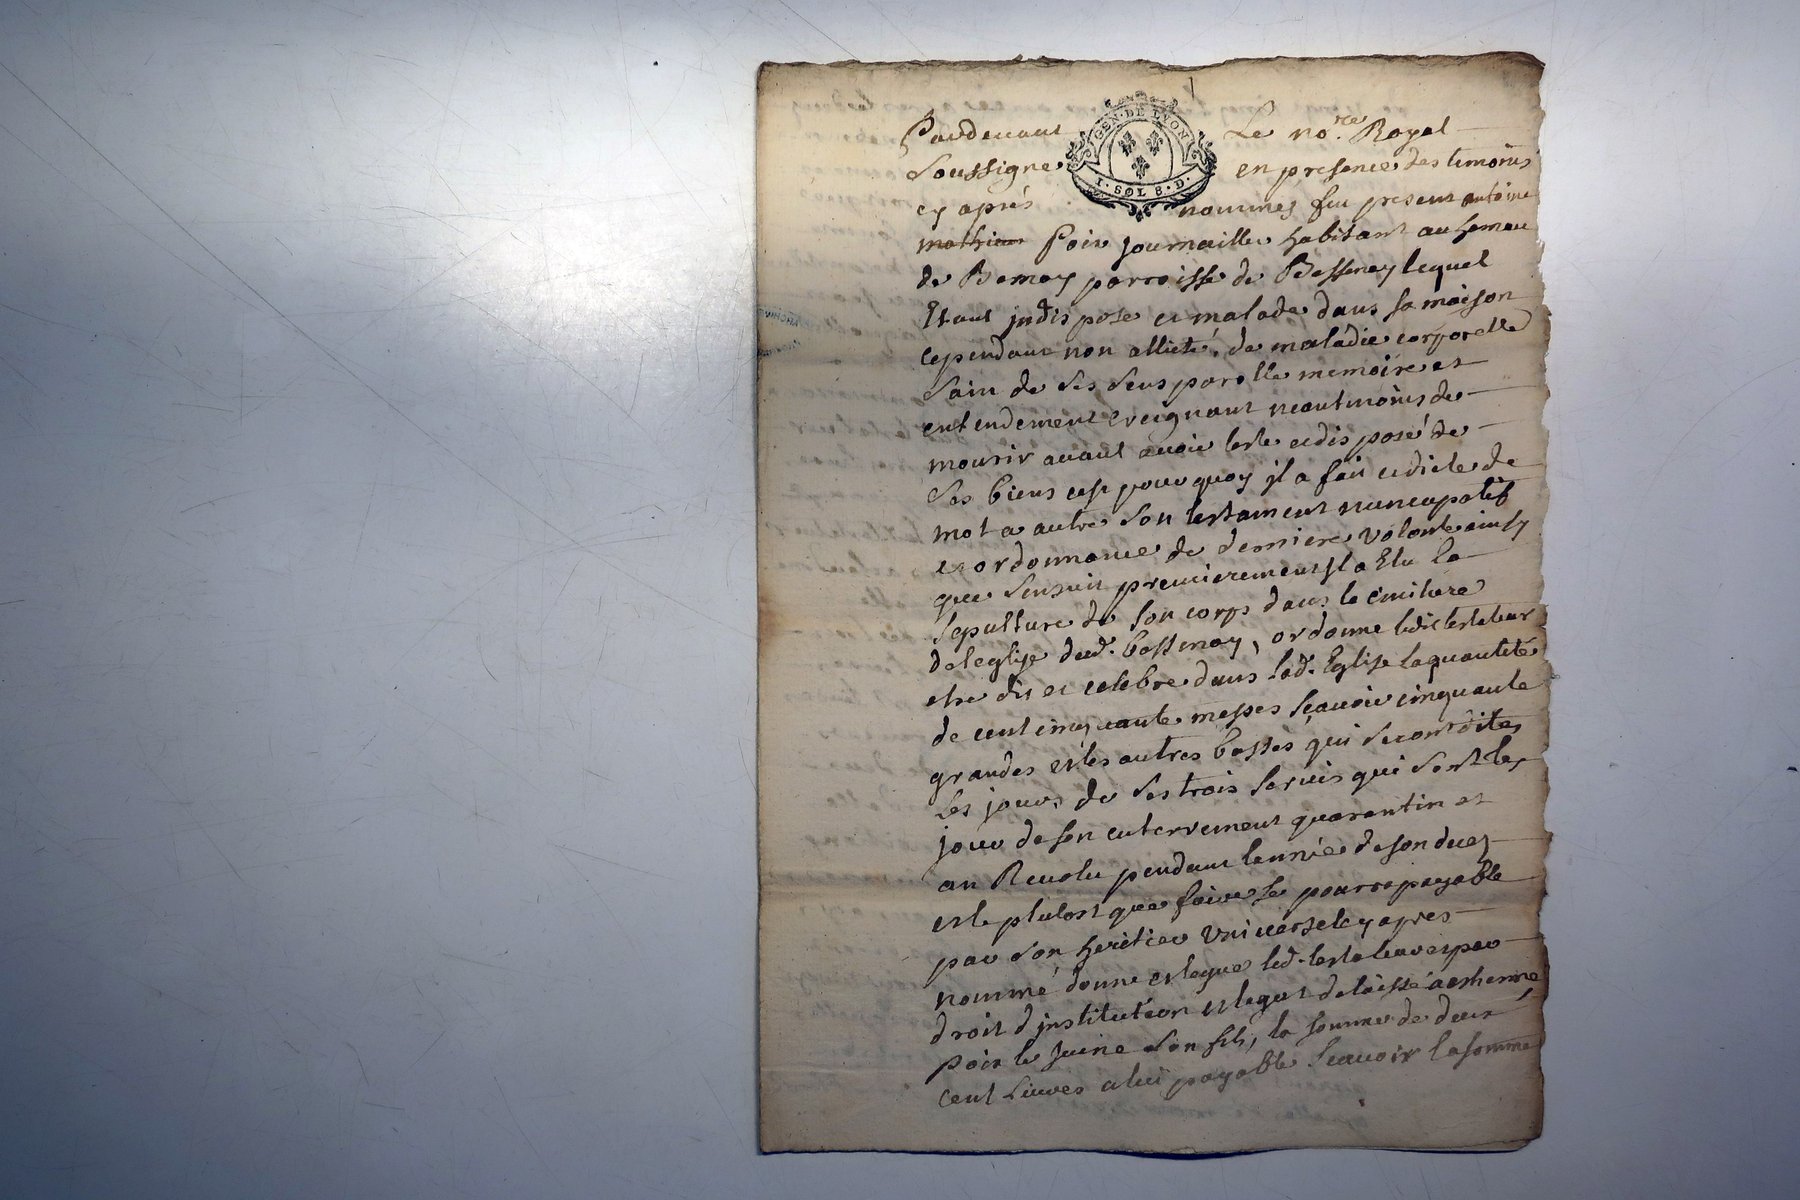 Pardevant Le no.re Royal
GEN·DE LYON
I·SOL 8·D·
Soussigne en presence des temoins
cy aprés nommes fut present antoine
mathieu Poix journaillier habitant au hameau
de Bernay parroisse de Bessenay lequel
Etant jndispose et malade dans sa maison
cependant non allicté, de maladie corporelle
sain de ses sens parolle memoire et
entendement creignant neantmoins de
mourir avant avoir teste et disposé de
ses biens cest pourquoy jl a fait et dicte de
mot a autre son testament nuncupatif
et ordonnance de derniere volonte ainsy
que sensuit premierement jl a Elu la
sepulture de son corps dans le cimitiere
de leglise dud. bessenay, ordonne ledit testateur
etre dit et celebre dans lad. Eglise la quantité
de cent cinquante messes scavoir cinquante
grandes et les autres basses qui seront dites
les jours de ses trois servis qui sont les
jour de son enterrement quarantin et
an Revolu pendant lannée de son deces
et le plutost que faire se pourra payable
par son heritier Universel cy apres
nommé donne et legue led. testateur et par
droit d jnstitution et legat delaissé a etienne
Poix le jeune son fils, la somme de deux
cent Livres a lui payable Scavoir la somme